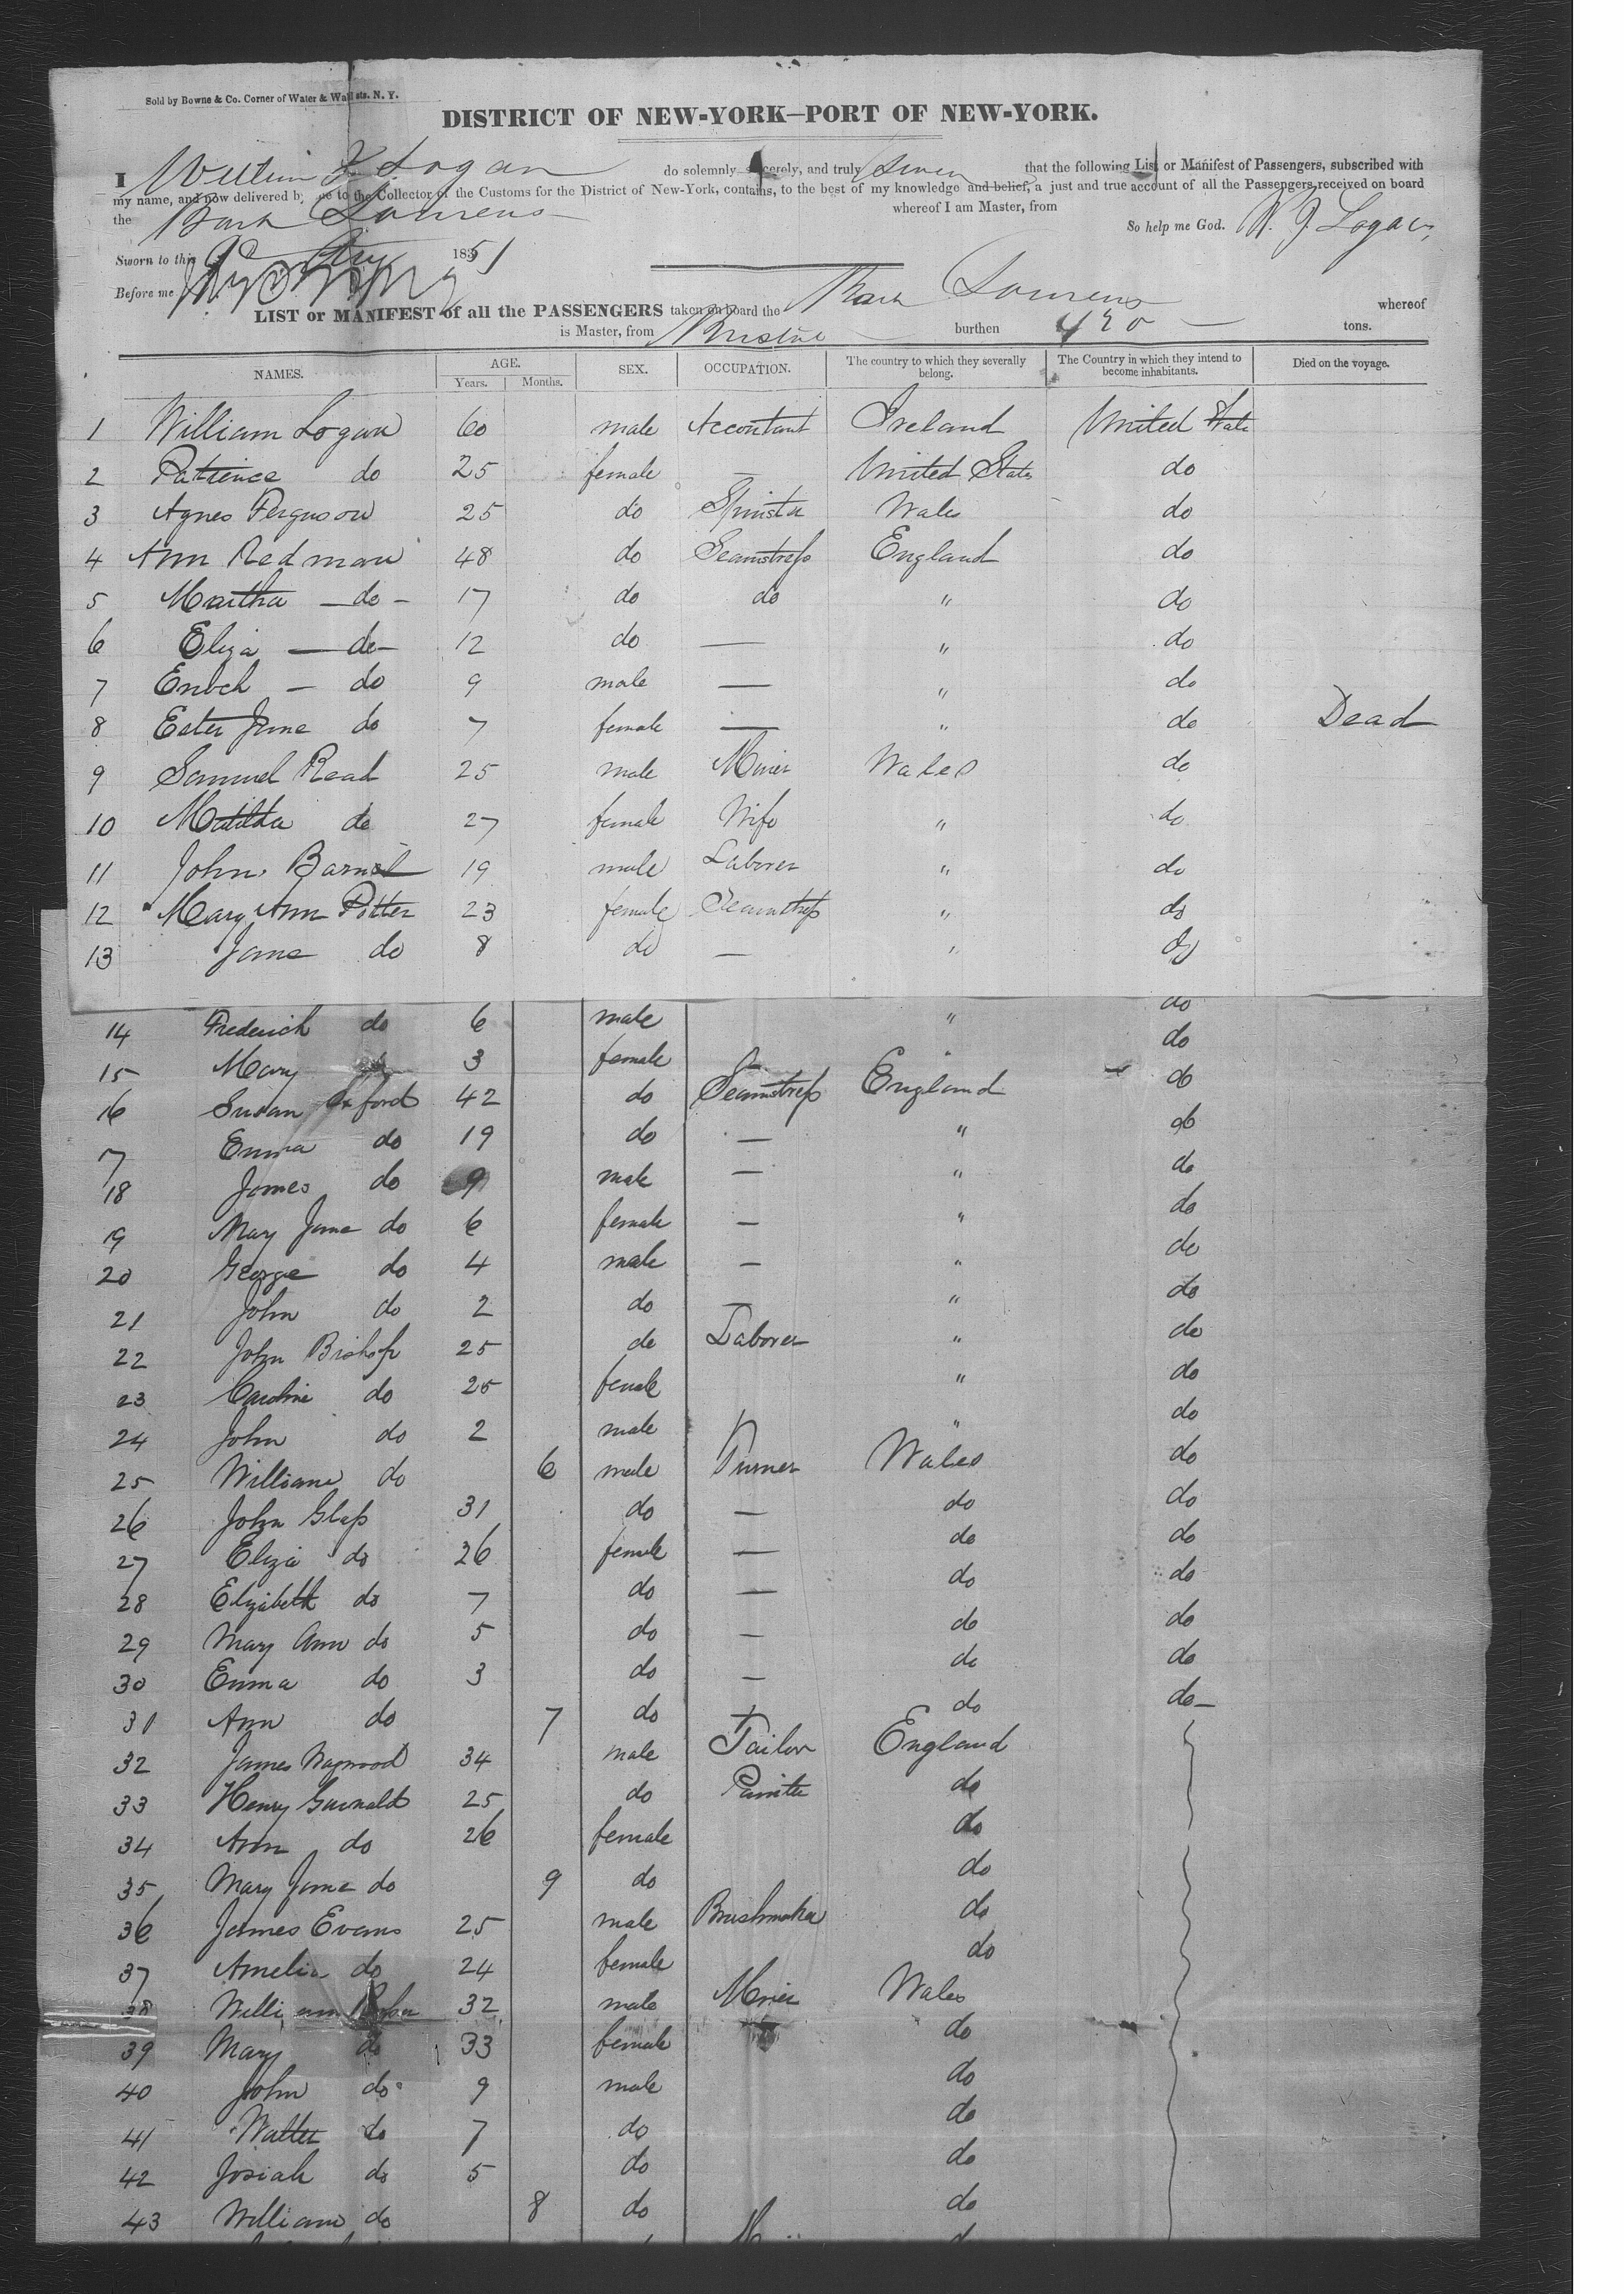 Sold by Bowne & Co. Corner of Water & Wall sts. N. Y.
DISTRICT OF NEW-YORK—PORT OF NEW-YORK.
I William J Logan do solemnly sincerely, and truly Swear that the following List or Manifest of Passengers, subscribed with
my name, and now delivered by me to the Collector of the Customs for the District of New-York, contains, to the best of my knowledge and belief, a just and true account of all the Passengers received on board
the Bark Laurens whereof I am Master, from
So help me God. W. J. Logan
Sworn to this 9 1851
Before me
LIST or MANIFEST of all the PASSENGERS taken on board the Bark Laurens whereof
is Master, from Bristol burthen 420 tons.
NAMES. AGE. Years. Months. SEX. OCCUPATION. The country to which they severally belong. The Country in which they intend to become inhabitants. Died on the voyage.
1 William Logan 60 male Accontant Ireland United State
2 Patience do 25 female — United States do
3 Agnes Ferguson 25 do Spinster Wales do
4 Ann Redman 48 do Seamstress England do
5 Martha — do — 17 do do " do
6 Eliza — do — 12 do — " do
7 Enoch — do 9 male — " do
8 Ester Jane do 7 female — " do Dead
9 Samuel Read 25 male Miner Wales do
10 Matilda do 27 female Wife " do
11 John Barnet 19 male Laborer " do
12 Mary Ann Potter 23 female Seamstress " do
13 Jane do 8 do — " do
14 Frederick do 6 male " do
15 Mary do 3 female do
16 Susan Oxford 42 do Seamstress England do
17 Emma do 19 do — " do
18 James do 9 male — " do
19 Mary Jane do 6 female — " do
20 George do 4 male — " do
21 John do 2 do — " do
22 John Bishop 25 do Laborer " do
23 Caroline do 25 female " do
24 John do 2 male " do
25 William do 6 male Turner Wales do
26 John Glass 31 do — do do
27 Eliza do 26 female — do do
28 Elizabeth do 7 do — do do
29 Mary Ann do 5 do — do do
30 Emma do 3 do — do do
31 Ann do 7 do — do do —
32 James 34 male Tailor England
33 Henry 25 do Painter do
34 Ann do 26 female do
35 Mary Jane do 9 do do
36 James Evans 25 male Brushmaker do
37 Amelia do 24 female do
38 William 32 male Miner Wales
39 Mary do 33 female do
40 John do 9 male do
41 Walter do 7 do do
42 Josiah do 5 do do
43 William do 8 do do